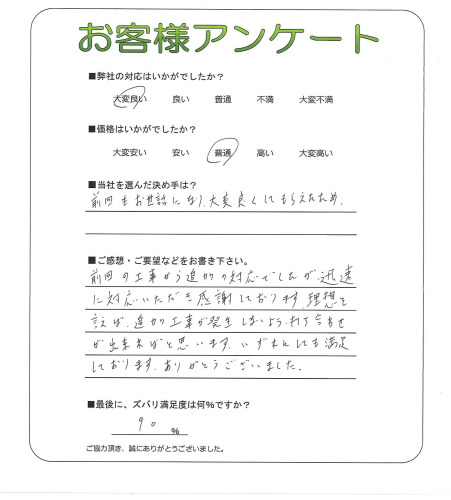 お客様アンケート
■弊社の対応はいかがでしたか？
大変良い 良い 普通 不満 大変不満
■価格はいかがでしたか？
大変安い 安い 普通 高い 大変高い
■当社を選んだ決め手は？
前回もお世話になり、大変良くしてもらえたため。
■ご感想・ご要望などをお書き下さい。
前回の工事から追加の対応でしたが、迅速
に対応いただき感謝しております。理想を
言えば、追加工事が発生しないよう、打ち合わせ
が出来ればと思います。いずれにしても満足
しております。ありがとうございました。
■最後に、ズバリ満足度は何％ですか？
90 ％
ご協力頂き、誠にありがとうございました。